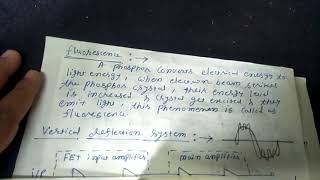 fluorescence :→
A phosphor converts electrical energy to
light energy, when electron beam strikes
the phosphor crystal, their energy level
is increased & crystal get excited & they
emit light, this phenomenon is called as
fluorescence.
Vertical deflection system :→
FET input amplifier main amplifier
I/P